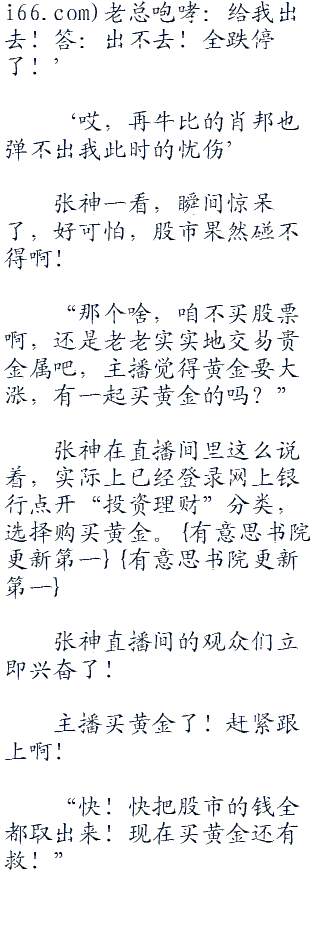 i66.com)老总咆哮：给我出
去！答：出不去！全跌停
了！’
‘哎，再牛比的肖邦也
弹不出我此时的忧伤’
张神一看，瞬间惊呆
了，好可怕，股市果然碰不
得啊！
“那个啥，咱不买股票
啊，还是老老实实地交易贵
金属吧，主播觉得黄金要大
涨，有一起买黄金的吗？”
张神在直播间里这么说
着，实际上已经登录网上银
行点开“投资理财”分类，
选择购买黄金。{有意思书院
更新第一}{有意思书院更新
第一}
张神直播间的观众们立
即兴奋了！
主播买黄金了！赶紧跟
上啊！
“快！快把股市的钱全
都取出来！现在买黄金还有
救！”